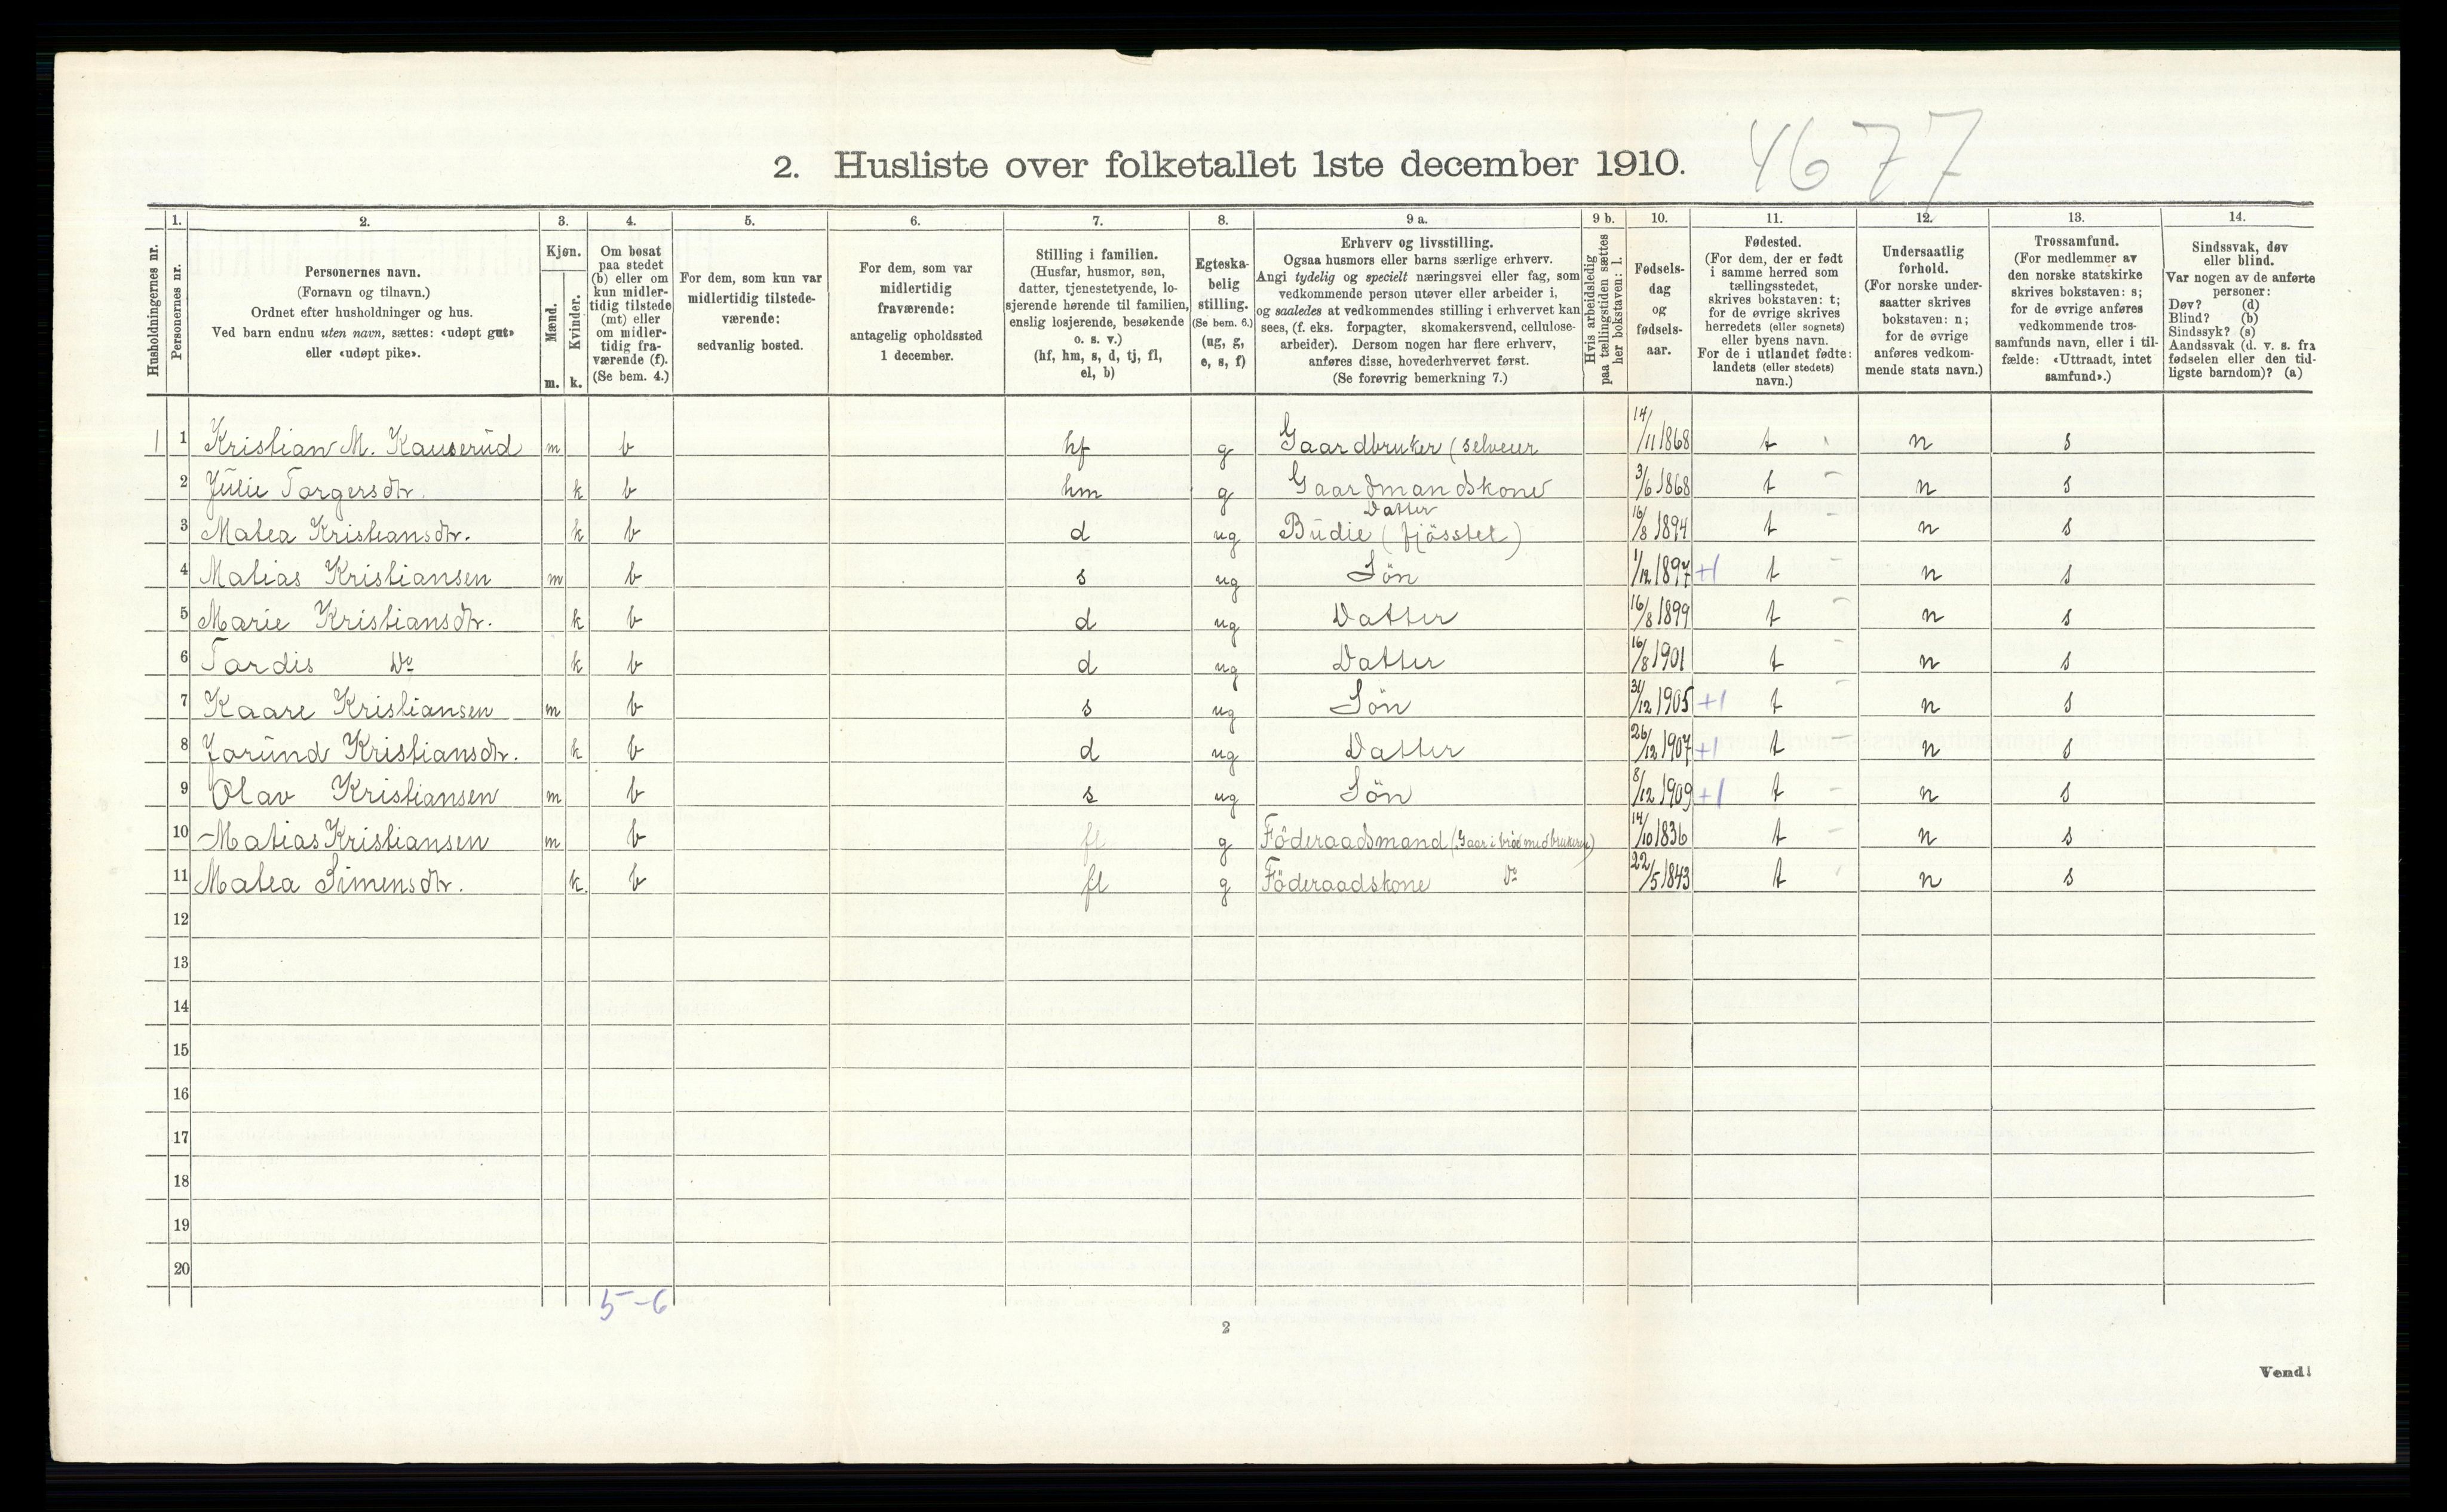 4677
2. Husliste over folketallet 1ste december 1910.
Husholdningernes nr.
1. Personernes nr.
2. Personernes navn. (Fornavn og tilnavn.) Ordnet efter husholdninger og hus. Ved barn endnu uten navn, sættes: «udøpt gut» eller «udøpt pike».
3. Kjøn. Mænd. m. Kvinder. k.
4. Om bosat paa stedet (b) eller om kun midlertidig tilstede (mt) eller om midlertidig fraværende (f). (Se bem. 4.)
5. For dem, som kun var midlertidig tilstedeværende: sedvanlig bosted.
6. For dem, som var midlertidig fraværende: antagelig opholdssted 1 december.
7. Stilling i familien. (Husfar, husmor, søn, datter, tjenestetyende, losjerende hørende til familien, enslig losjerende, besøkende o. s. v.) (hf, hm, s, d, tj, fl, el, b)
8. Egteskabelig stilling. (Se bem. 6.) (ug, g, e, s, f)
9 a. Erhverv og livsstilling. Ogsaa husmors eller barns særlige erhverv. Angi tydelig og specielt næringsvei eller fag, som vedkommende person utøver eller arbeider i, og saaledes at vedkommendes stilling i erhvervet kan sees, (f. eks. forpagter, skomakersvend, cellulosearbeider). Dersom nogen har flere erhverv, anføres disse, hovederhvervet først. (Se forøvrig bemerkning 7.)
9 b. Hvis arbeidsledig paa tællingstiden sættes her bokstaven: l.
10. Fødselsdag og fødselsaar.
11. Fødested. (For dem, der er født i samme herred som tællingsstedet, skrives bokstaven: t; for de øvrige skrives herredets (eller sognets) eller byens navn. For de i utlandet fødte: landets (eller stedets) navn.)
12. Undersaatlig forhold. (For norske undersaatter skrives bokstaven: n; for de øvrige anføres vedkommende stats navn.)
13. Trossamfund. (For medlemmer av den norske statskirke skrives bokstaven: s; for de øvrige anføres vedkommende trossamfunds navn, eller i tilfælde: «Uttraadt, intet samfund».)
14. Sindssvak, døv eller blind. Var nogen av de anførte personer: Døv? (d) Blind? (b) Sindssyk? (s) Aandssvak (d. v. s. fra fødselen eller den tidligste barndom)? (a)
1 1 Kristian M. Kauserud m b hf g Gaardbruker (selveier 14/11 1868 t n s
2 Julie Torgersdtr. k b hm g Gaardmandskone 3/6 1868 t n s
3 Matea Kristiansdtr. k b d ug Datter Budie (fjösstel) 16/8 1894 t n s
4 Matias Kristiansen m b s ug Sön 1/12 1897 +1 t n s
5 Marie Kristiansdtr. k b d ug Datter 16/8 1899 t n s
6 Tordis Do k b d ug Datter 16/8 1901 t n s
7 Kaare Kristiansen m b s ug Sön 31/12 1905 +1 t n s
8 Jorund Kristiansdtr. k b d ug Datter 26/12 1907 +1 t n s
9 Olav Kristiansen m b s ug Sön 8/12 1909 +1 t n s
10 Matias Kristiansen m b fl g Föderaadsmand (Gaar i bröd med brukeren) 14/10 1836 t n s
11 Matea Simensdtr. k. b fl g Föderaadskone Do 22/5 1843 t n s
12
13
14
15
16
17
18
19
20
5-6
2
Vend!